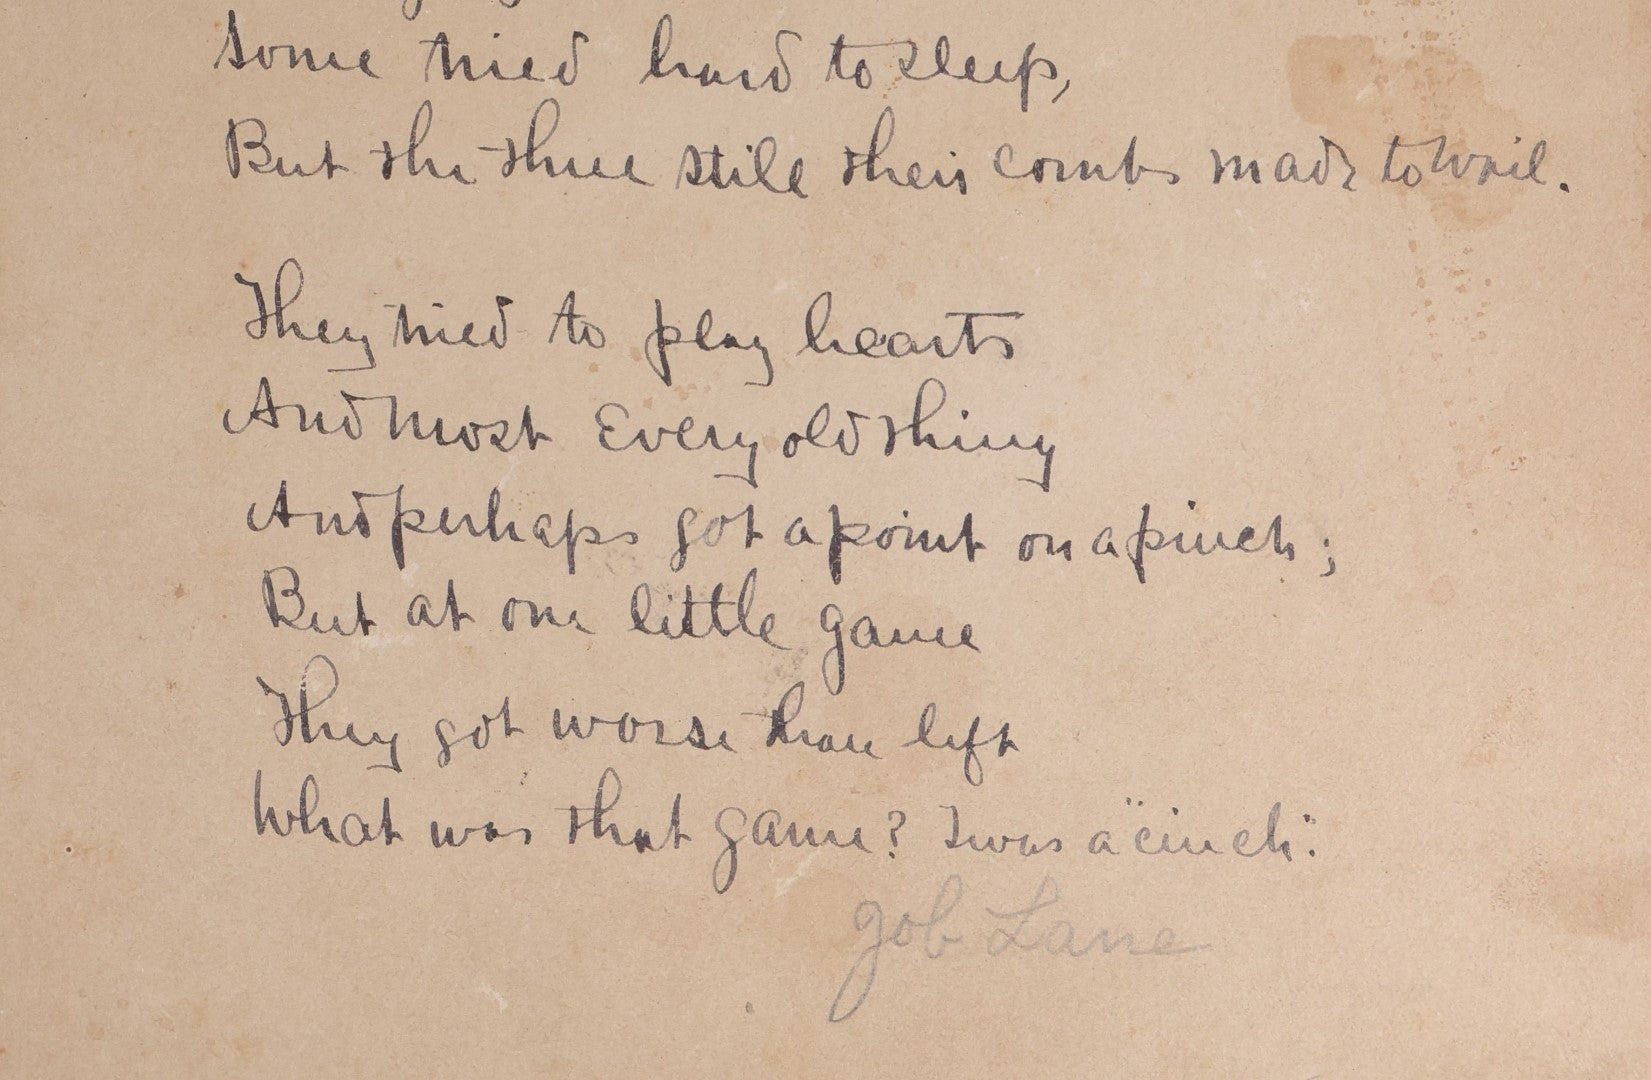 Some tried hard to sleep,
But the three still their combs made to wail.
They tried to play hearts
And most Every old thing
And perhaps got a point on a pinch;
But at one little game
They got worse than left
What was that game? Twas a "cinch".
Job Lane